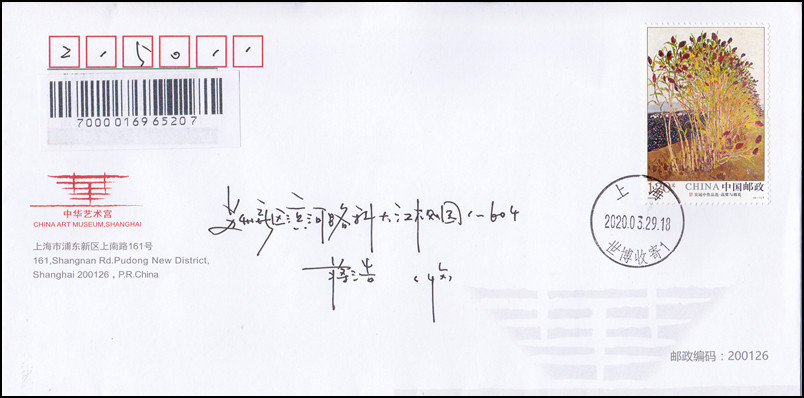 215011
7000016965207
中华艺术宫
CHINA ART MUSEUM,SHANGHAI
上海市浦东新区上南路161号
161,Shangnan Rd.Pudong New District,
Shanghai 200126 , P.R.China
1.20元 CHINA 中国邮政
上海
2020.03.29.18
世博收寄1
苏州新区滨河路科大江枫园1-604
蒋浩 (收)
邮政编码：200126